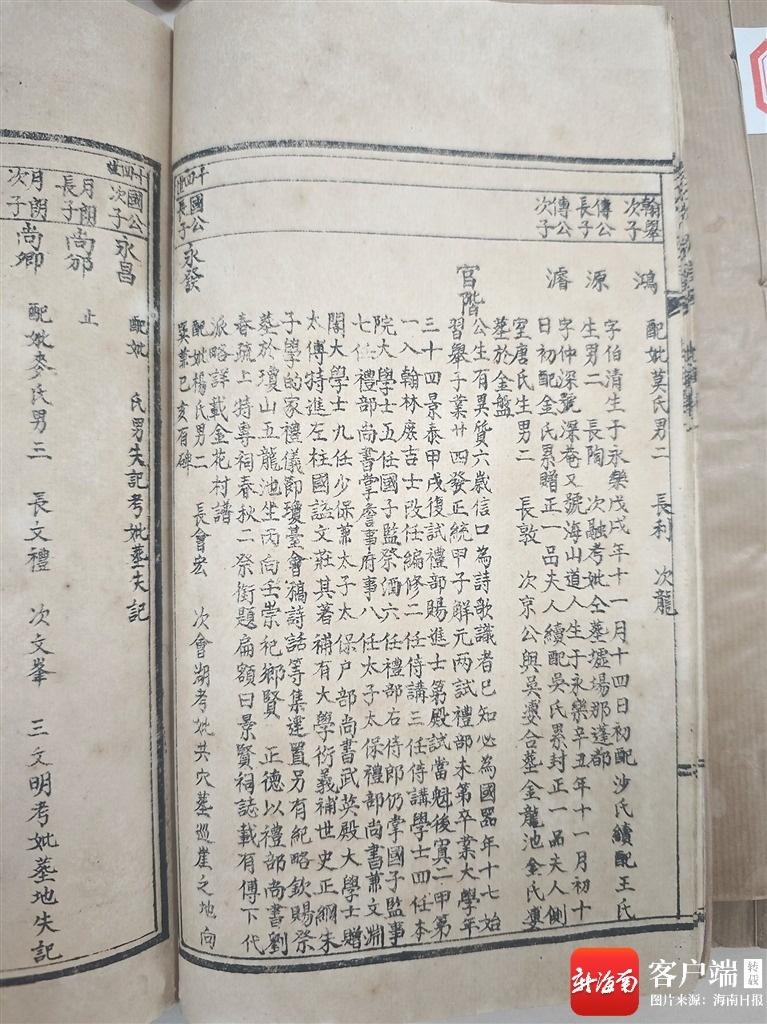 翰舉次子 鴻 配妣莫氏男二 長利 次龍
傳公長子 源 字伯清生于永樂戊戌年十一月十四日初配沙氏續配王氏
生男二 長陶 次融考妣仝墓墟場那蓬都
傳公次子 濬 字仲深號深菴又號海山道人生于永樂辛丑年十一月初十
日初配金氏累贈正一品夫人續配吳氏累封正一品夫人側
室唐氏生男二 長敦 次京公與吳㜑合墓金龍池金氏㜑
墓於金盤
官階 公生有異質六歲信口為詩歌識者已知必為國器年十七始
習舉子業廿四發正統甲子解元兩試禮部未第卒業大學年
三十四景泰甲戌復試禮部賜進士第殿試當魁後寘二甲第
一入翰林庶吉士改任編修二任侍講三任侍講學士四任本
院大學士五任國子監祭酒六任禮部右侍郎仍掌國子監事
七任禮部尚書掌詹事府事八任太子太保禮部尚書兼文淵
閣大學士九任少保兼太子太保户部尚書武英殿大學士贈
太傅特進左柱國謚文莊其著補有大學衍義補世史正綱朱
子學的家禮儀節瓊臺會稿詩話等集遷置另有紀略欽賜祭
墓於瓊山五龍池坐丙向壬崇祀鄉賢 正德以禮部尚書劉
春疏上特專祠春秋二祭銜題扁額曰景賢祠誌載有傳下代
派略詳載金花村譜
十四世 國公長子 永發 配妣楊氏男二 長會宏 次會湖考妣共穴墓巡崖之地向
巽兼巳亥有碑
十四世 國公次子 永昌 配妣 氏男失記考妣墓失記
月朗長子 尚邠 止
月朗次子 尚卿 配妣麥氏男三 長文禮 次文峯 三文明考妣墓地失記
新海南 客户端 转载
图片来源：海南日报